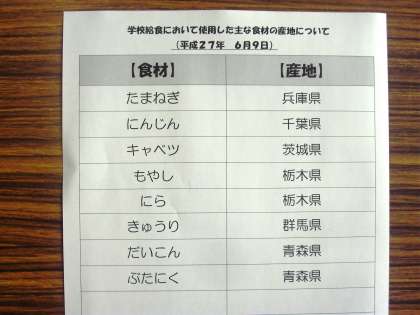 学校給食において使用した主な食材の産地について
（平成２７年　６月９日）
【食材】　【産地】
たまねぎ　兵庫県
にんじん　千葉県
キャベツ　茨城県
もやし　栃木県
にら　栃木県
きゅうり　群馬県
だいこん　青森県
ぶたにく　青森県